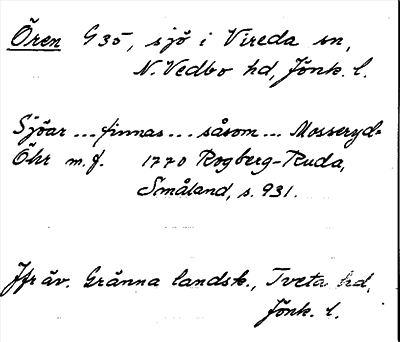 Ören G35, sjö i Vireda sn,
N. Vedbo hd, Jönk. l.
Sjöar ... finnas ... såsom ... Mosseryd-
Öhr m. f. 1770 Rogberg-Ruda,
Småland, s. 931.
Jfr äv. Gränna landsk., Tveta hd,
Jönk. l.